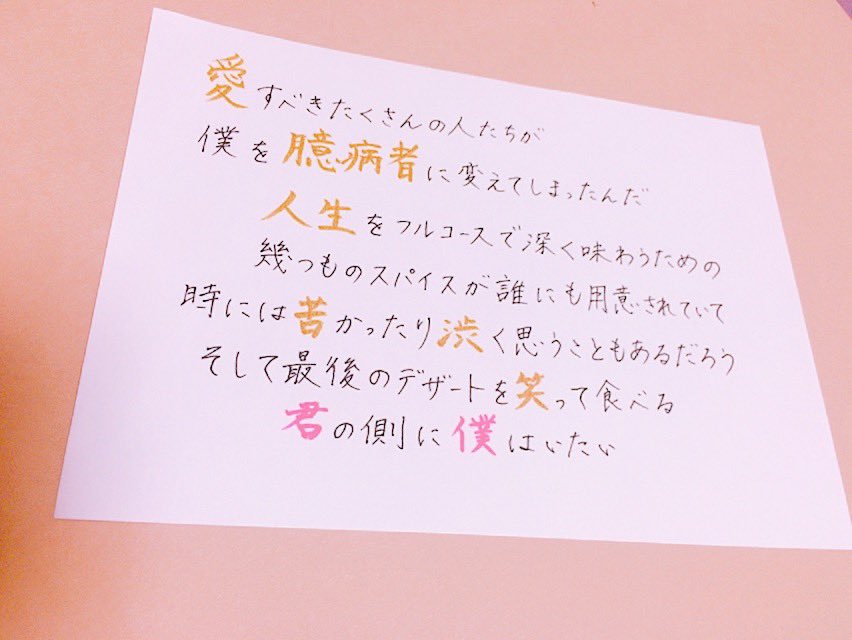 愛すべきたくさんの人たちが
僕を臆病者に変えてしまったんだ
人生をフルコースで深く味わうための
幾つものスパイスが誰にも用意されていて
時には苦かったり渋く思うこともあるだろう
そして最後のデザートを笑って食べる
君の側に僕はいたい